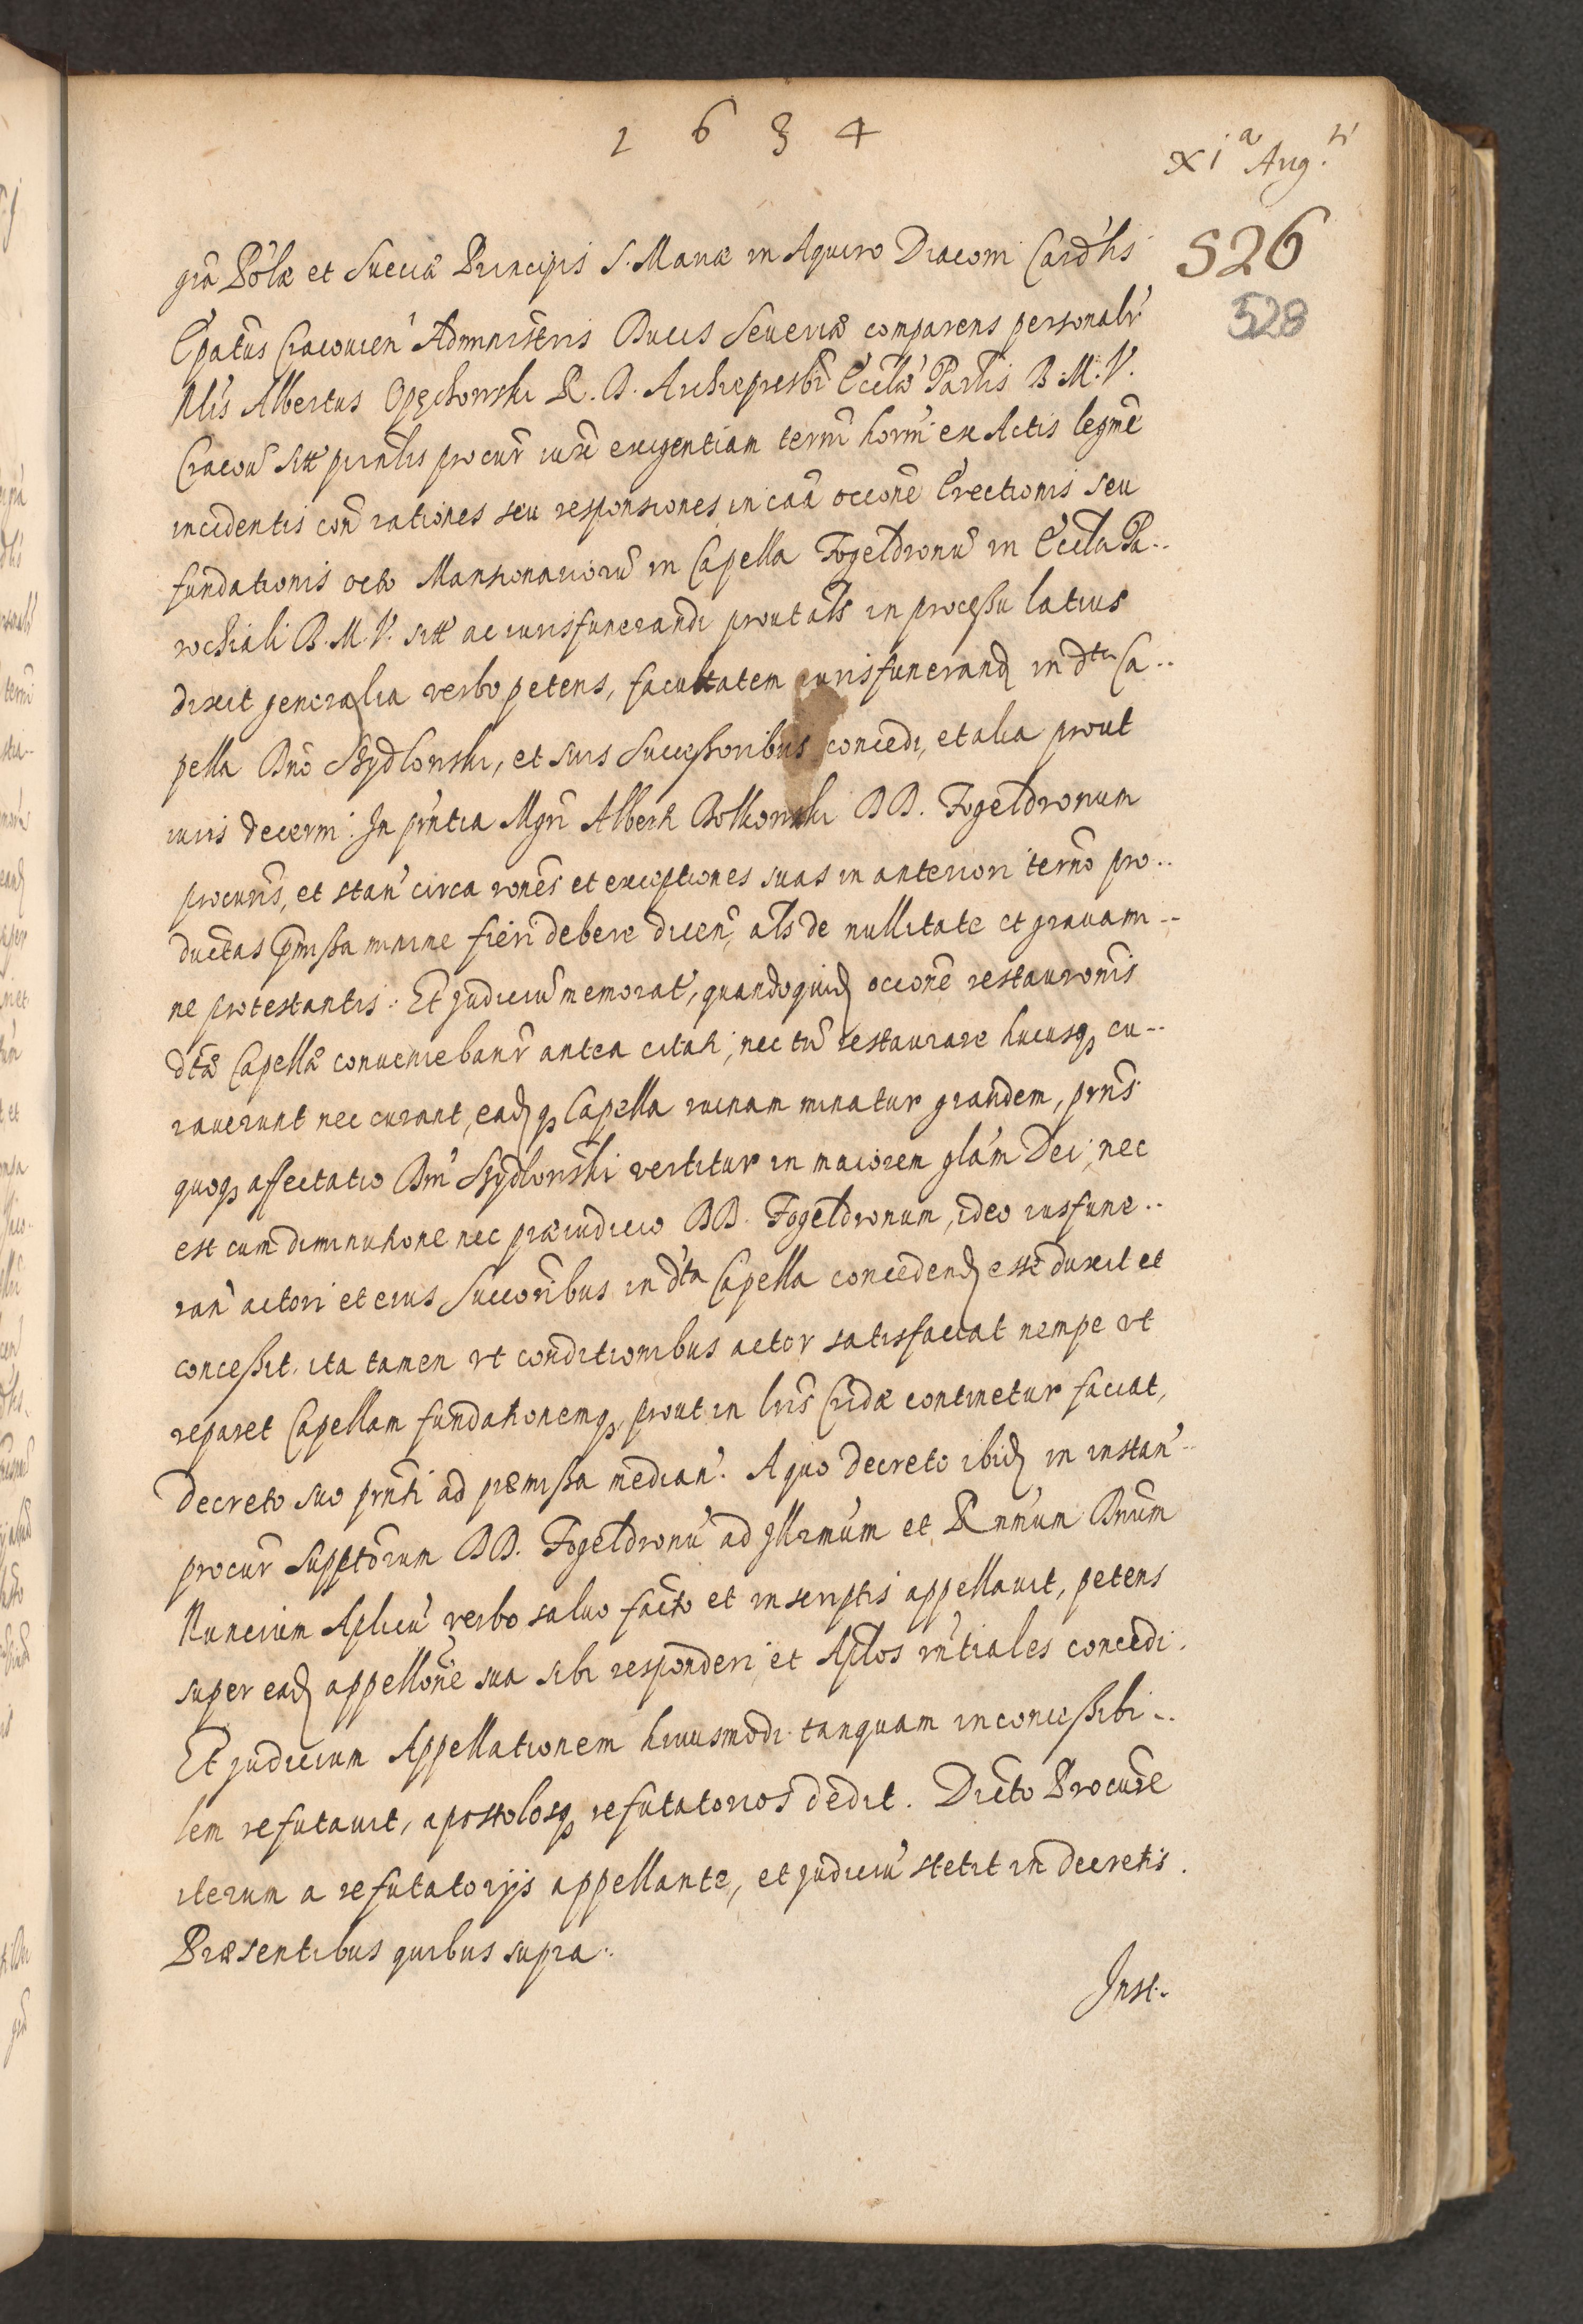 1 6 3 4
XI a Aug. ti
526
528
grã Pól̃æ et Sueciæ Principis S. Mariæ in Aquiro Diaconi Cardĩlis
Ep̃atus Cracouien̾ Administrĩs Ducis Seueriæ comparens personalr̃
Nl̃is Albertus Opęchowski P. D. Archipresbr̃i Eccl̃æ Parl̃is B. M. V.
Cracou̾ principl̃is procur̃ iuxẽ exigentiam termĩ horm̃ ex Actis legmẽ
incidentis con̾ rationes seu responsiones in caã occonẽ Erectionis seu
fundationis octo Mansionariorũ in Capella Fogeldronũ in Eccl̃a Pa..
rochiali B. M. V. ac iurisfunerandi prout als̃ in processu latius
dixit generalia verbo petens, facultatem iurisfunerand in dta Ca..
pella Dno Szydlowski, et suis Successoribus concedi, et alia prout
iuris decerni: In prñtia Mgrĩ Alberti Borkowski DD. Fogeldronum
procurĩs, et stan̾ circa ronẽs et exceptiones suas in anteriori termõ pro..
ductas pm̃issa minime fieri debere dicen̾, als̃ de nullitate et grauami..
ne protestantis. Et Judiciũ memorat̃, quandoquid occonẽ restauronĩs
dtæ Capellæ conueniebanr̃ antea citati, nec tñ restaurare hucusq cu..
rauerunt nec curant, eadq Capella ruinam minatur grandem, prñs
quoq affectatio Dni Szydlowski vertitur in maiorem glam̃ Dei, nec
est cum diminutione nec præiudicio DD. Fogeldronum, ideo iusfune..
ran̾ actori et eius Succoribus in dta Capella concedend esse duxit et
concessit. ita tamen vt conditionibus actor satisfaciat nempe vt
reparet Capellam fundationemq, prout in lr̃is Cridæ continetur faciat,
decreto suo prñti ad præmissa median̾. A quo decreto ibid in instan̾..
procur̃ suppctorum DD. Fogeldronũ ad Illrmũm et Rnmũm Dnũm
Nuncium Aplicũ verbo saluo facto et in scriptis appellauit, petens
super ead appellonẽ sua sibi responderi et Aplõs rntiales concedi.
Et judicium Appellationem huiusmodi tanquam inconcessibi..
lem refutauit, apostolosq refutatorios dedit. Dicto Procurẽ
iterum a refutatorijs appellante, et judiciũ stetit in decretis.
Præsentibus quibus supra..
Inst..